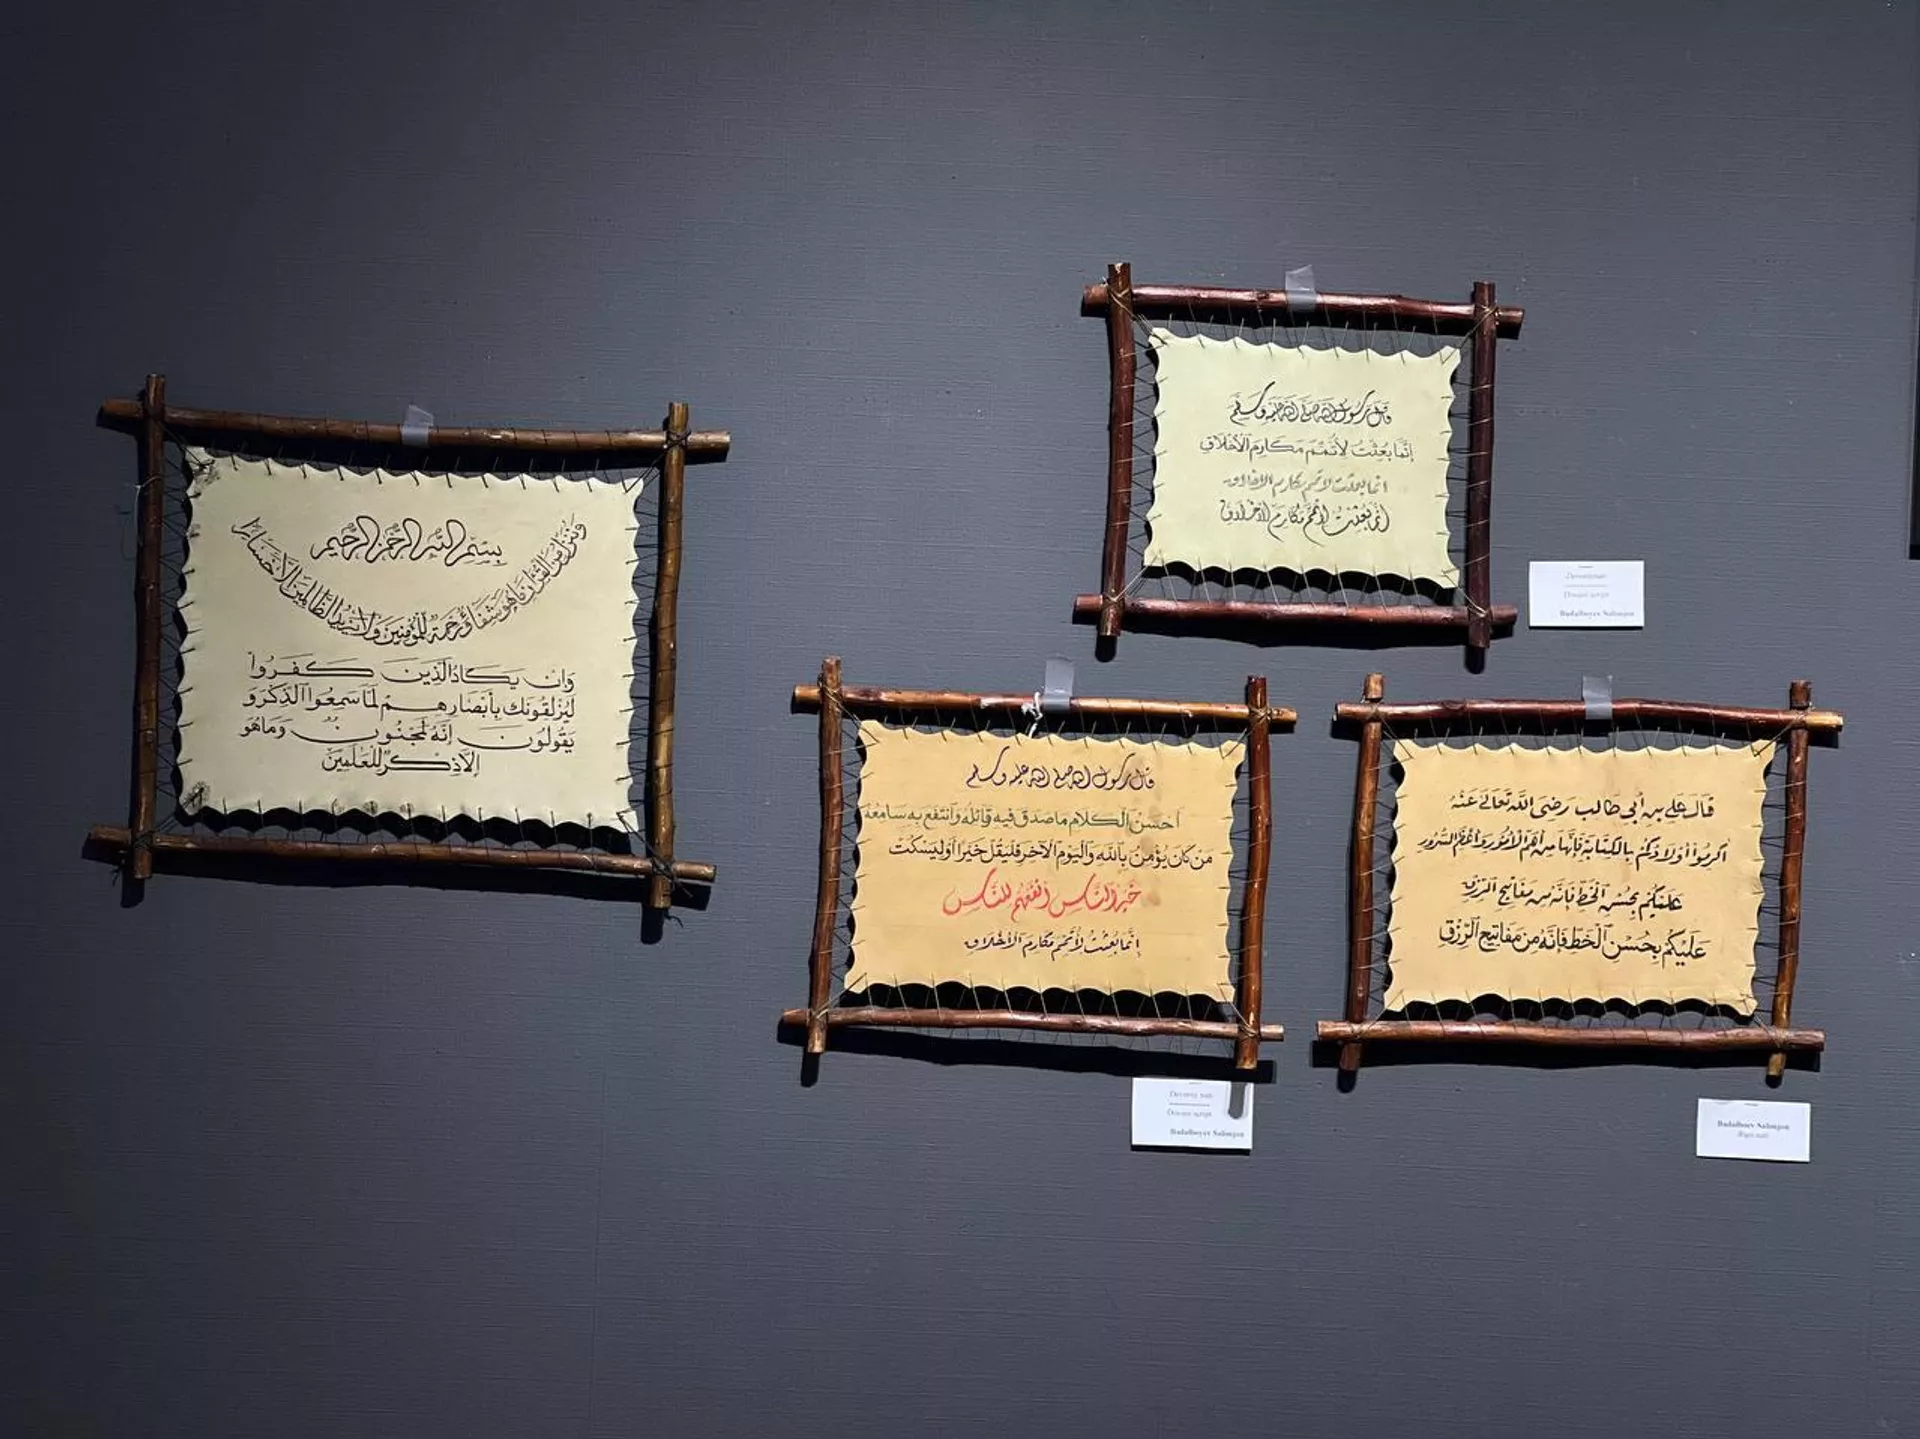 بسم الله الرحمن الرحيم
وننزل من القرآن ما هو شفاء ورحمة للمؤمنين ولا يزيد الظالمين إلا خسارا
وَان يَكَادُ الَّذِينَ كَفَرُوا
لَيُزلِقونَكَ بِأَبْصَارِهِمْ لَمَّا سَمِعُوا الذِّكْرَ وَ
يَقُولُونَ إِنَّهُ لَمَجْنُونٌ وَمَا هُوَ
إِلَّا ذِكْرٌ لِلْعَالَمِينَ
قال رسول الله صلى الله عليه وسلم
إنَّمَا بُعِثْتُ لأُتَمِّمَ مَكَارِمَ الأخْلَاقِ
انما بعثت لاتمم مكارم الاخلاق
إنما بعثت لأتمم مكارم الأخلاق
Diwani script
Badalboyev Salimjon
قال رسول الله صلى الله عليه وسلم
احسن الكلام ما صدق فيه قائله وانتفع به سامعه
من كان يؤمن بالله واليوم الآخر فليقل خيرا او ليسكت
خير الناس انفعهم للناس
إنما بعثت لأتمم مكارم الأخلاق
Devoniy xati
Diwani script
Badalboyev Salimjon
قَالَ عَلي بن أبي طالب رضى الله تَعَالَى عَنْهُ
اكرموا أولادكم بالكتابة فإنها من أهم الأمور وأعظم السرور
عليكم بحسن الخط فإنه من مفاتيح الرزق
عَلَيْكُمْ بِحُسْنِ الْخَطِ فَإِنَّهُ مِنْ مَفَاتِيحِ الرِّزْقِ
Badalboev Salimjon